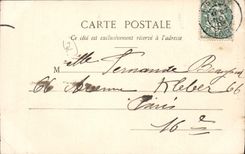 CARTE POSTALE
Ce côté est exclusivement réservé à l'adresse
Mlle Fernande
66 Avenue Kleber 66
Paris
16e